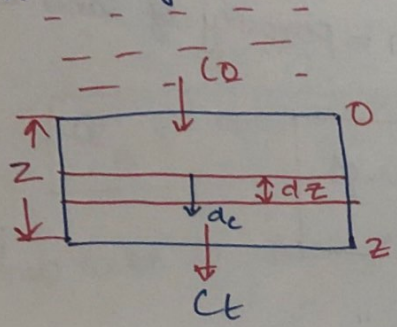 C0
0
Z
dz
dc
z
Ct